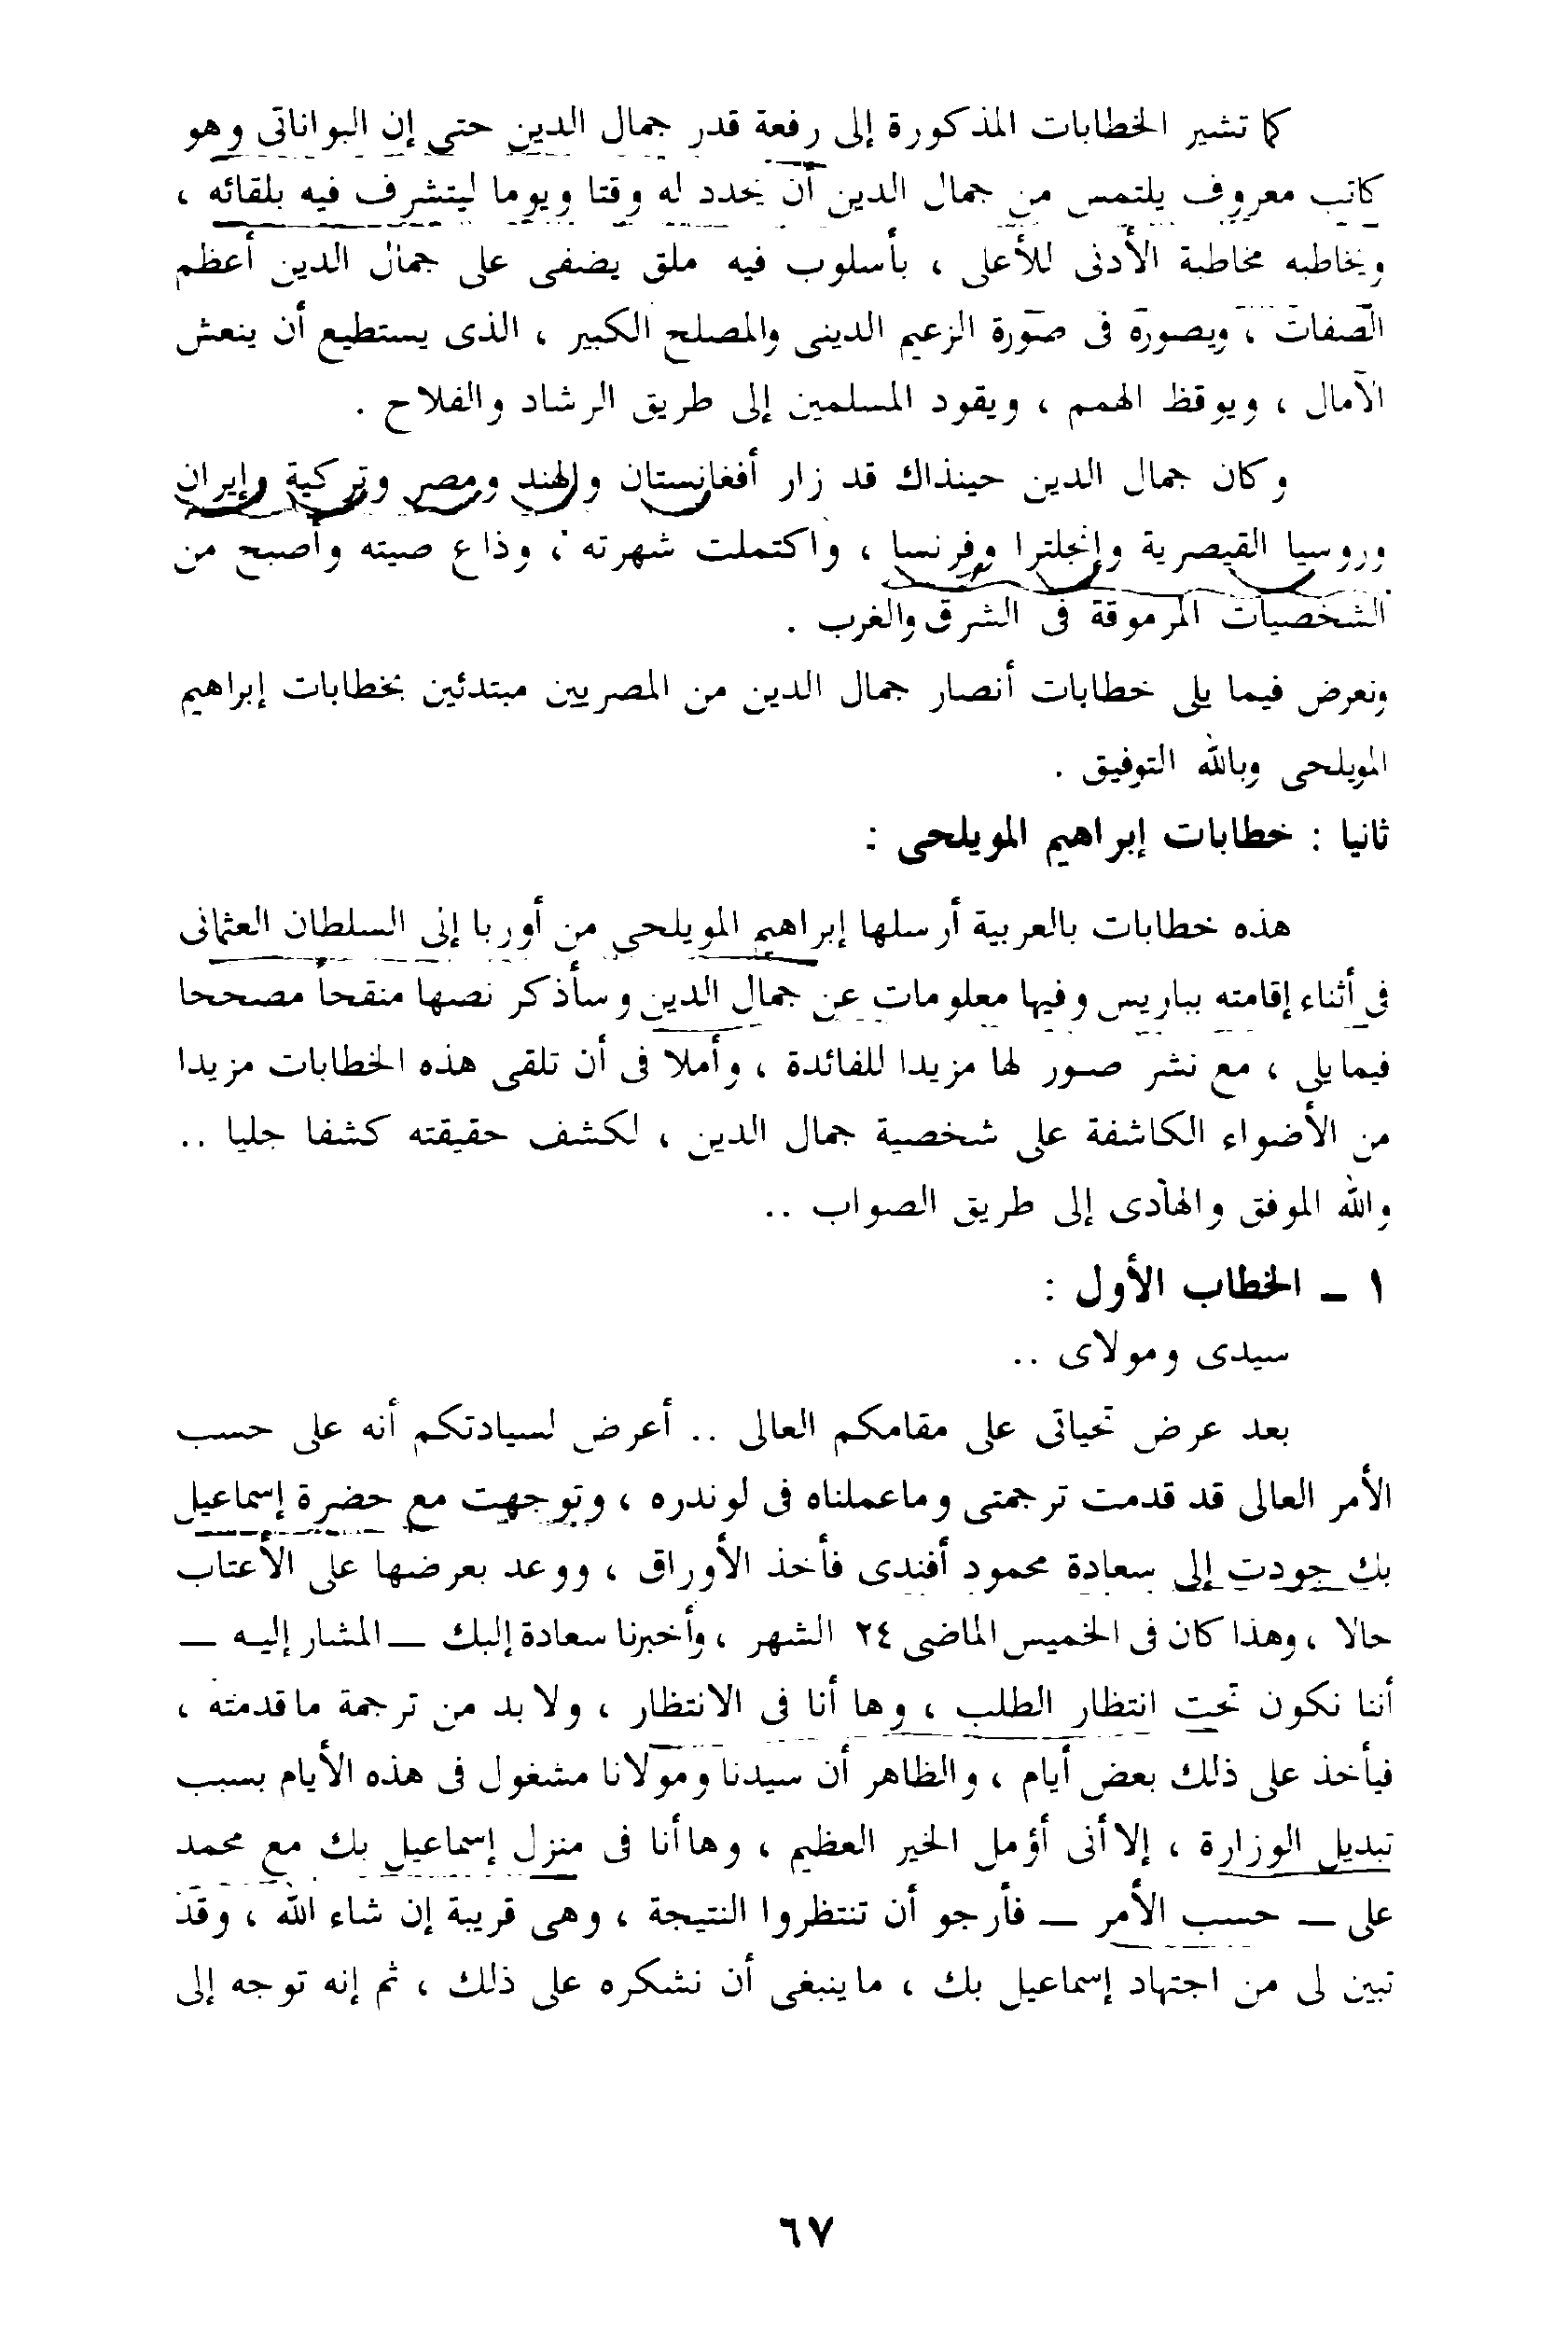 كما تشير الخطابات المذكورة إلى رفعة قدر جمال الدين حتى إن البواناتى وهو
كاتب معروف يلتمس من جمال الدين أن يحدد له وقتا ويوما ليتشرف فيه بلقائه ،
ويخاطبه مخاطبة الأدنى للأعلى ، بأسلوب فيه ملق يضفى على جمال الدين أعظم
الصفات ، ويصوره فى صورة الزعيم الدينى والمصلح الكبير ، الذى يستطيع أن ينعش
الآمال ، ويوقظ الهمم ، ويقود المسلمين إلى طريق الرشاد والفلاح .
وكان جمال الدين حينذاك قد زار أفغانستان والهند ومصر وتركية وإيران
وروسيا القيصرية وإنجلترا وفرنسا ، واكتملت شهرته ، وذاع صيته وأصبح من
الشخصيات المرموقة فى الشرق والغرب .
ونعرض فيما يلى خطابات أنصار جمال الدين من المصريين مبتدئين بخطابات إبراهيم
المويلحى وبالله التوفيق .
ثانيا : خطابات إبراهيم المويلحى :
هذه خطابات بالعربية أرسلها إبراهيم المويلحى من أوربا إلى السلطان العثمانى
فى أثناء إقامته بباريس وفيها معلومات عن جمال الدين وسأذكر نصها منقحاً مصححا
فيما يلى ، مع نشر صور لها مزيدا للفائدة ، وأملا فى أن تلقى هذه الخطابات مزيدا
من الأضواء الكاشفة على شخصية جمال الدين ، لكشف حقيقته كشفا جليا ..
والله الموفق والهادى إلى طريق الصواب ..
١ - الخطاب الأول :
سيدى ومولاى ..
بعد عرض تحياتى على مقامكم العالى .. أعرض لسيادتكم أنه على حسب
الأمر العالى قد قدمت ترجمتى وماعملناه فى لوندره ، وتوجهت مع حضرة إسماعيل
بك جودت إلى سعادة محمود أفندى فأخذ الأوراق ، ووعد بعرضها على الأعتاب
حالا ، وهذا كان فى الخميس الماضى ٢٤ الشهر ، وأخبرنا سعادة إلبك ــ المشار إليه ــ
أننا نكون تحت انتظار الطلب ، وها أنا فى الانتظار ، ولا بد من ترجمة ماقدمته ،
فيأخذ على ذلك بعض أيام ، والظاهر أن سيدنا ومولانا مشغول فى هذه الأيام بسبب
تبديل الوزارة ، إلا أنى أؤمل الخير العظيم ، وها أنا فى منزل إسماعيل بك مع محمد
على ــ حسب الأمر ــ فأرجو أن تنتظروا النتيجة ، وهى قريبة إن شاء الله ، وقد
تبين لى من اجتهاد إسماعيل بك ، ماينبغى أن نشكره على ذلك ، ثم إنه توجه إلى
٦٧